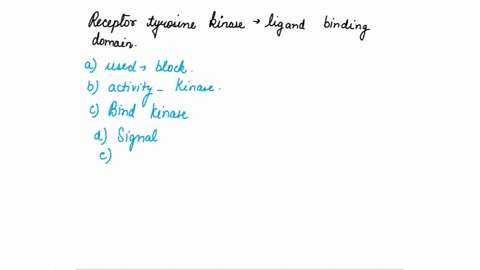 Receptor tyrosine kinase → ligand binding
domain.
a) used → block.
b) activity - Kinase.
c) Bind kinase
d) Signal
e)